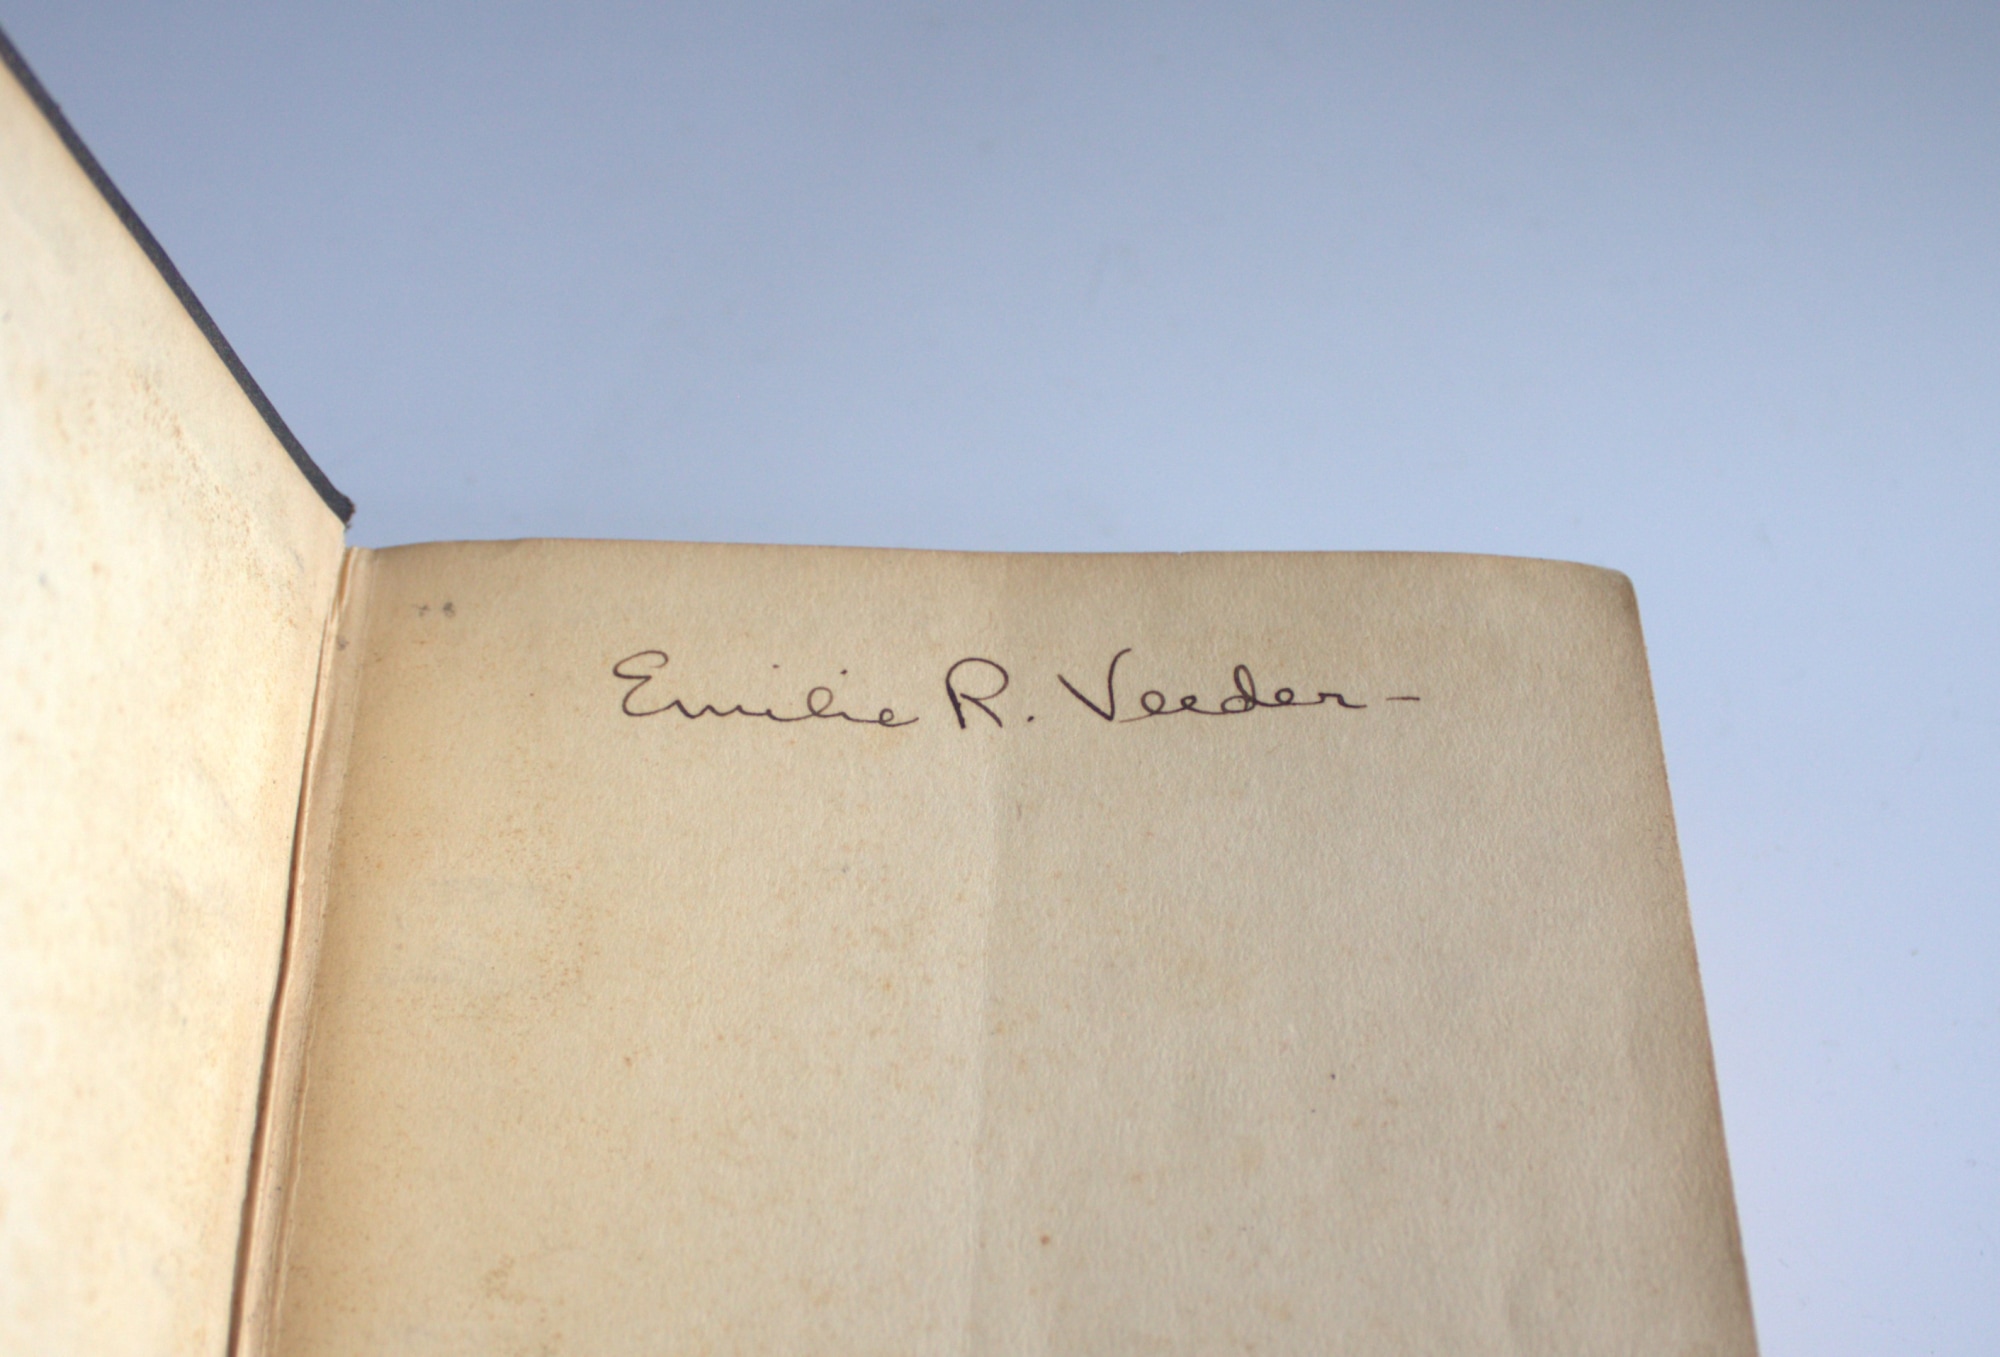 Emilie R. Veeder –